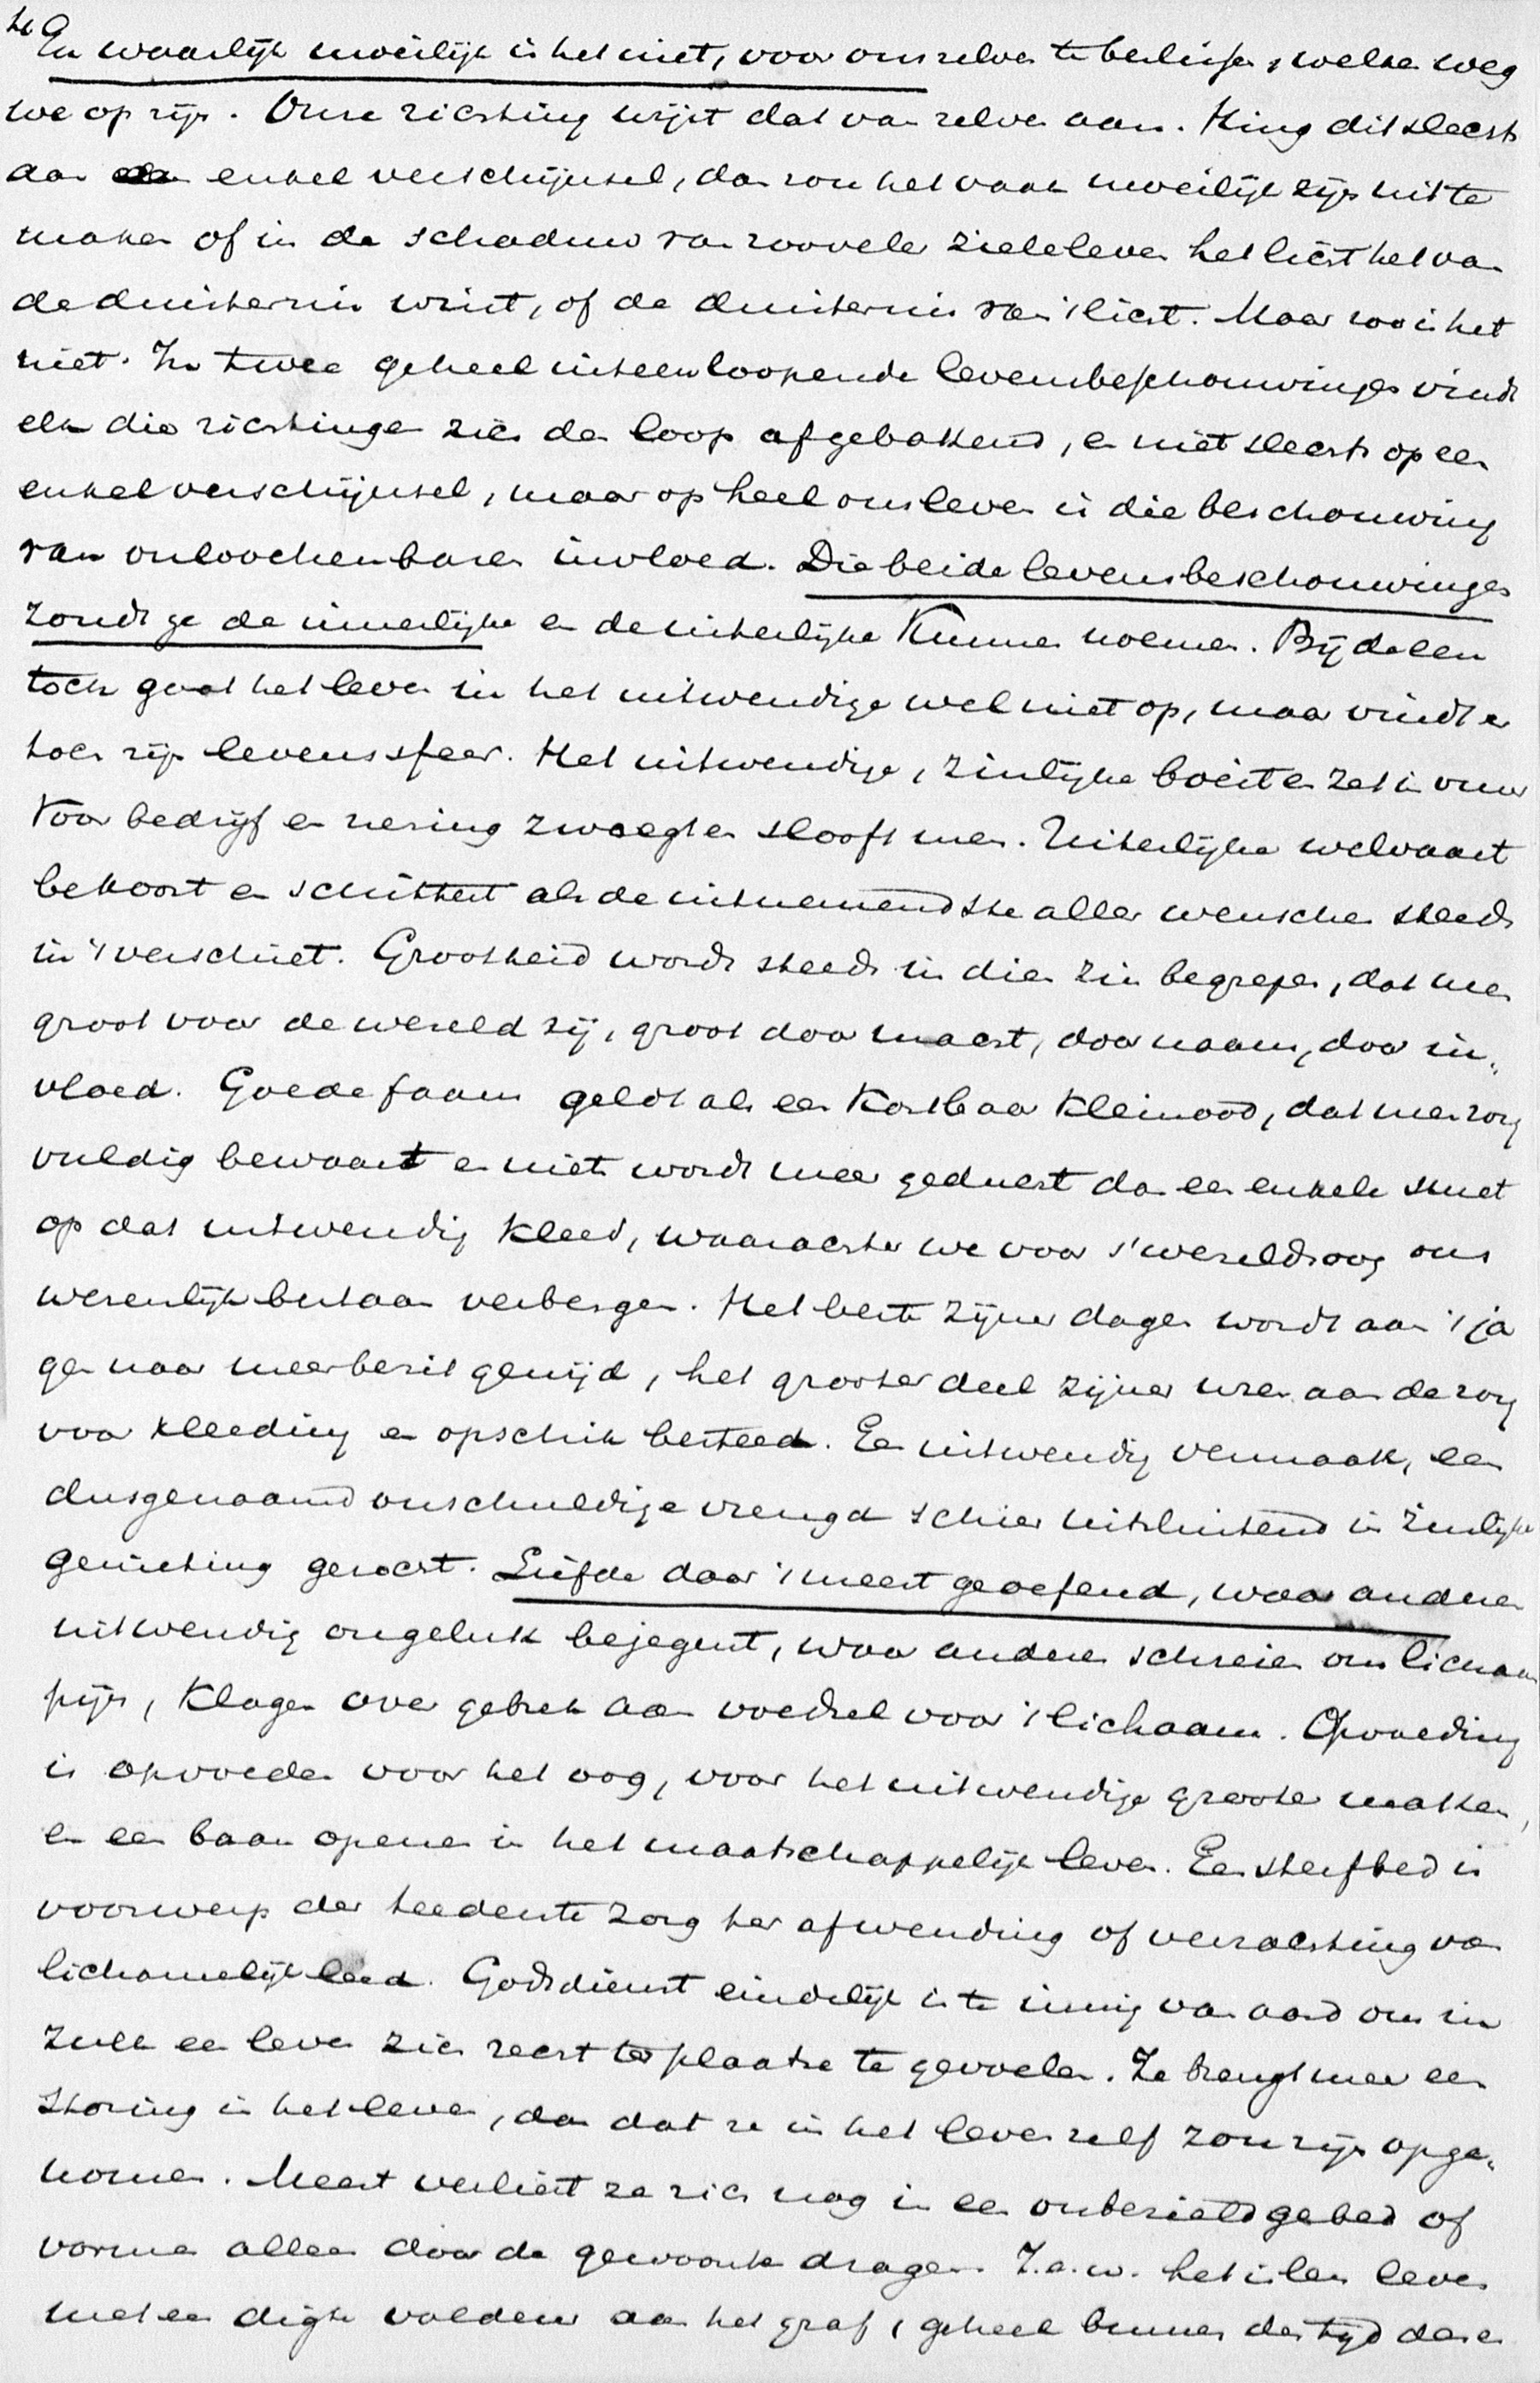 En waarlijk moeilijk is het niet, voor ons zelven te beslissen, welken weg
we op zijn. Onze richting wijst dat van zelven aan. Hing dit slechts
aan een enkel verschijnsel, dan zou het vaak moeilijk zijn uit te
maken of in de schaduw van zoovele zieleleven het licht het van
de duisternis wint, of de duisternis van 't licht. Maar zoo is het
niet. In twee geheel uiteenloopende levensbeschouwingen vindt
elk die richtingen zich den loop afgebakend, en niet slechts op een
enkel verschijnsel, maar op heel ons leven is die beschouwing
van onloochenbaren invloed. Die beide levensbeschouwingen
zoudt ge de innerlijke en de uiterlijke kunnen noemen. Bij de een
toch gaat het leven in het uitwendige wel niet op, maar vindt er
toch zijn levenssfeer. Het uitwendige, zinlijke boeit en zet in vuur
Voor bedrijf en nering zwoegt en slooft men. Uiterlijke welvaart
bekoort en schittert als de uitnemendste aller wenschen steeds
in 't verschiet. Grootheid wordt steeds in dien zin begrepen, dat men
groot voor de wereld zij, groot door macht, door naam, door in-
vloed. Goede faam geldt als een kostbaar kleinood, dat men zorg
vuldig bewaart en niets wordt meer geducht dan een enkele smet
op dat uitwendig kleed, waarachter we voor 's werelds oog ons
wezenlijk bestaan verbergen. Het beste zijner dagen wordt aan 't ja
gen naar meer bezit gewijd, het grooter deel zijner uren aan de zorg
voor kleeding en opschik besteed. Een uitwendig vermaak, een
dusgenaamd onschuldige vreugd schier uitsluitend in zinlijke
genieting gezocht. Liefde daar 't meest geoefend, waar anderen
uitwendig ongeluk bejegent, waar anderen schreien om lichaams
pijn, klagen over gebrek aan voedsel voor 't lichaam. Opvoeding
is opvoeden voor het oog, voor het uitwendige grooter maken,
en een baan openen in het maatschappelijk leven. Een sterfbed is
voorwerp der teederste zorg ter afwending of verzachting van
lichamelijk leed. Godsdienst eindelijk is te innig van aard om in
zulk een leven zich recht ter plaatse te gevoelen. Ze brengt meer een
storing in het leven, dan dat ze in het leven zelf zou zijn opge-
nomen. Meest verliest ze zich nog in een onbezield gebed of
vormen alleen door de gewoonte dragen. M.a.w. het is een leven
met een dichte voldeur aan het graf, geheel binnen den tijd dezer